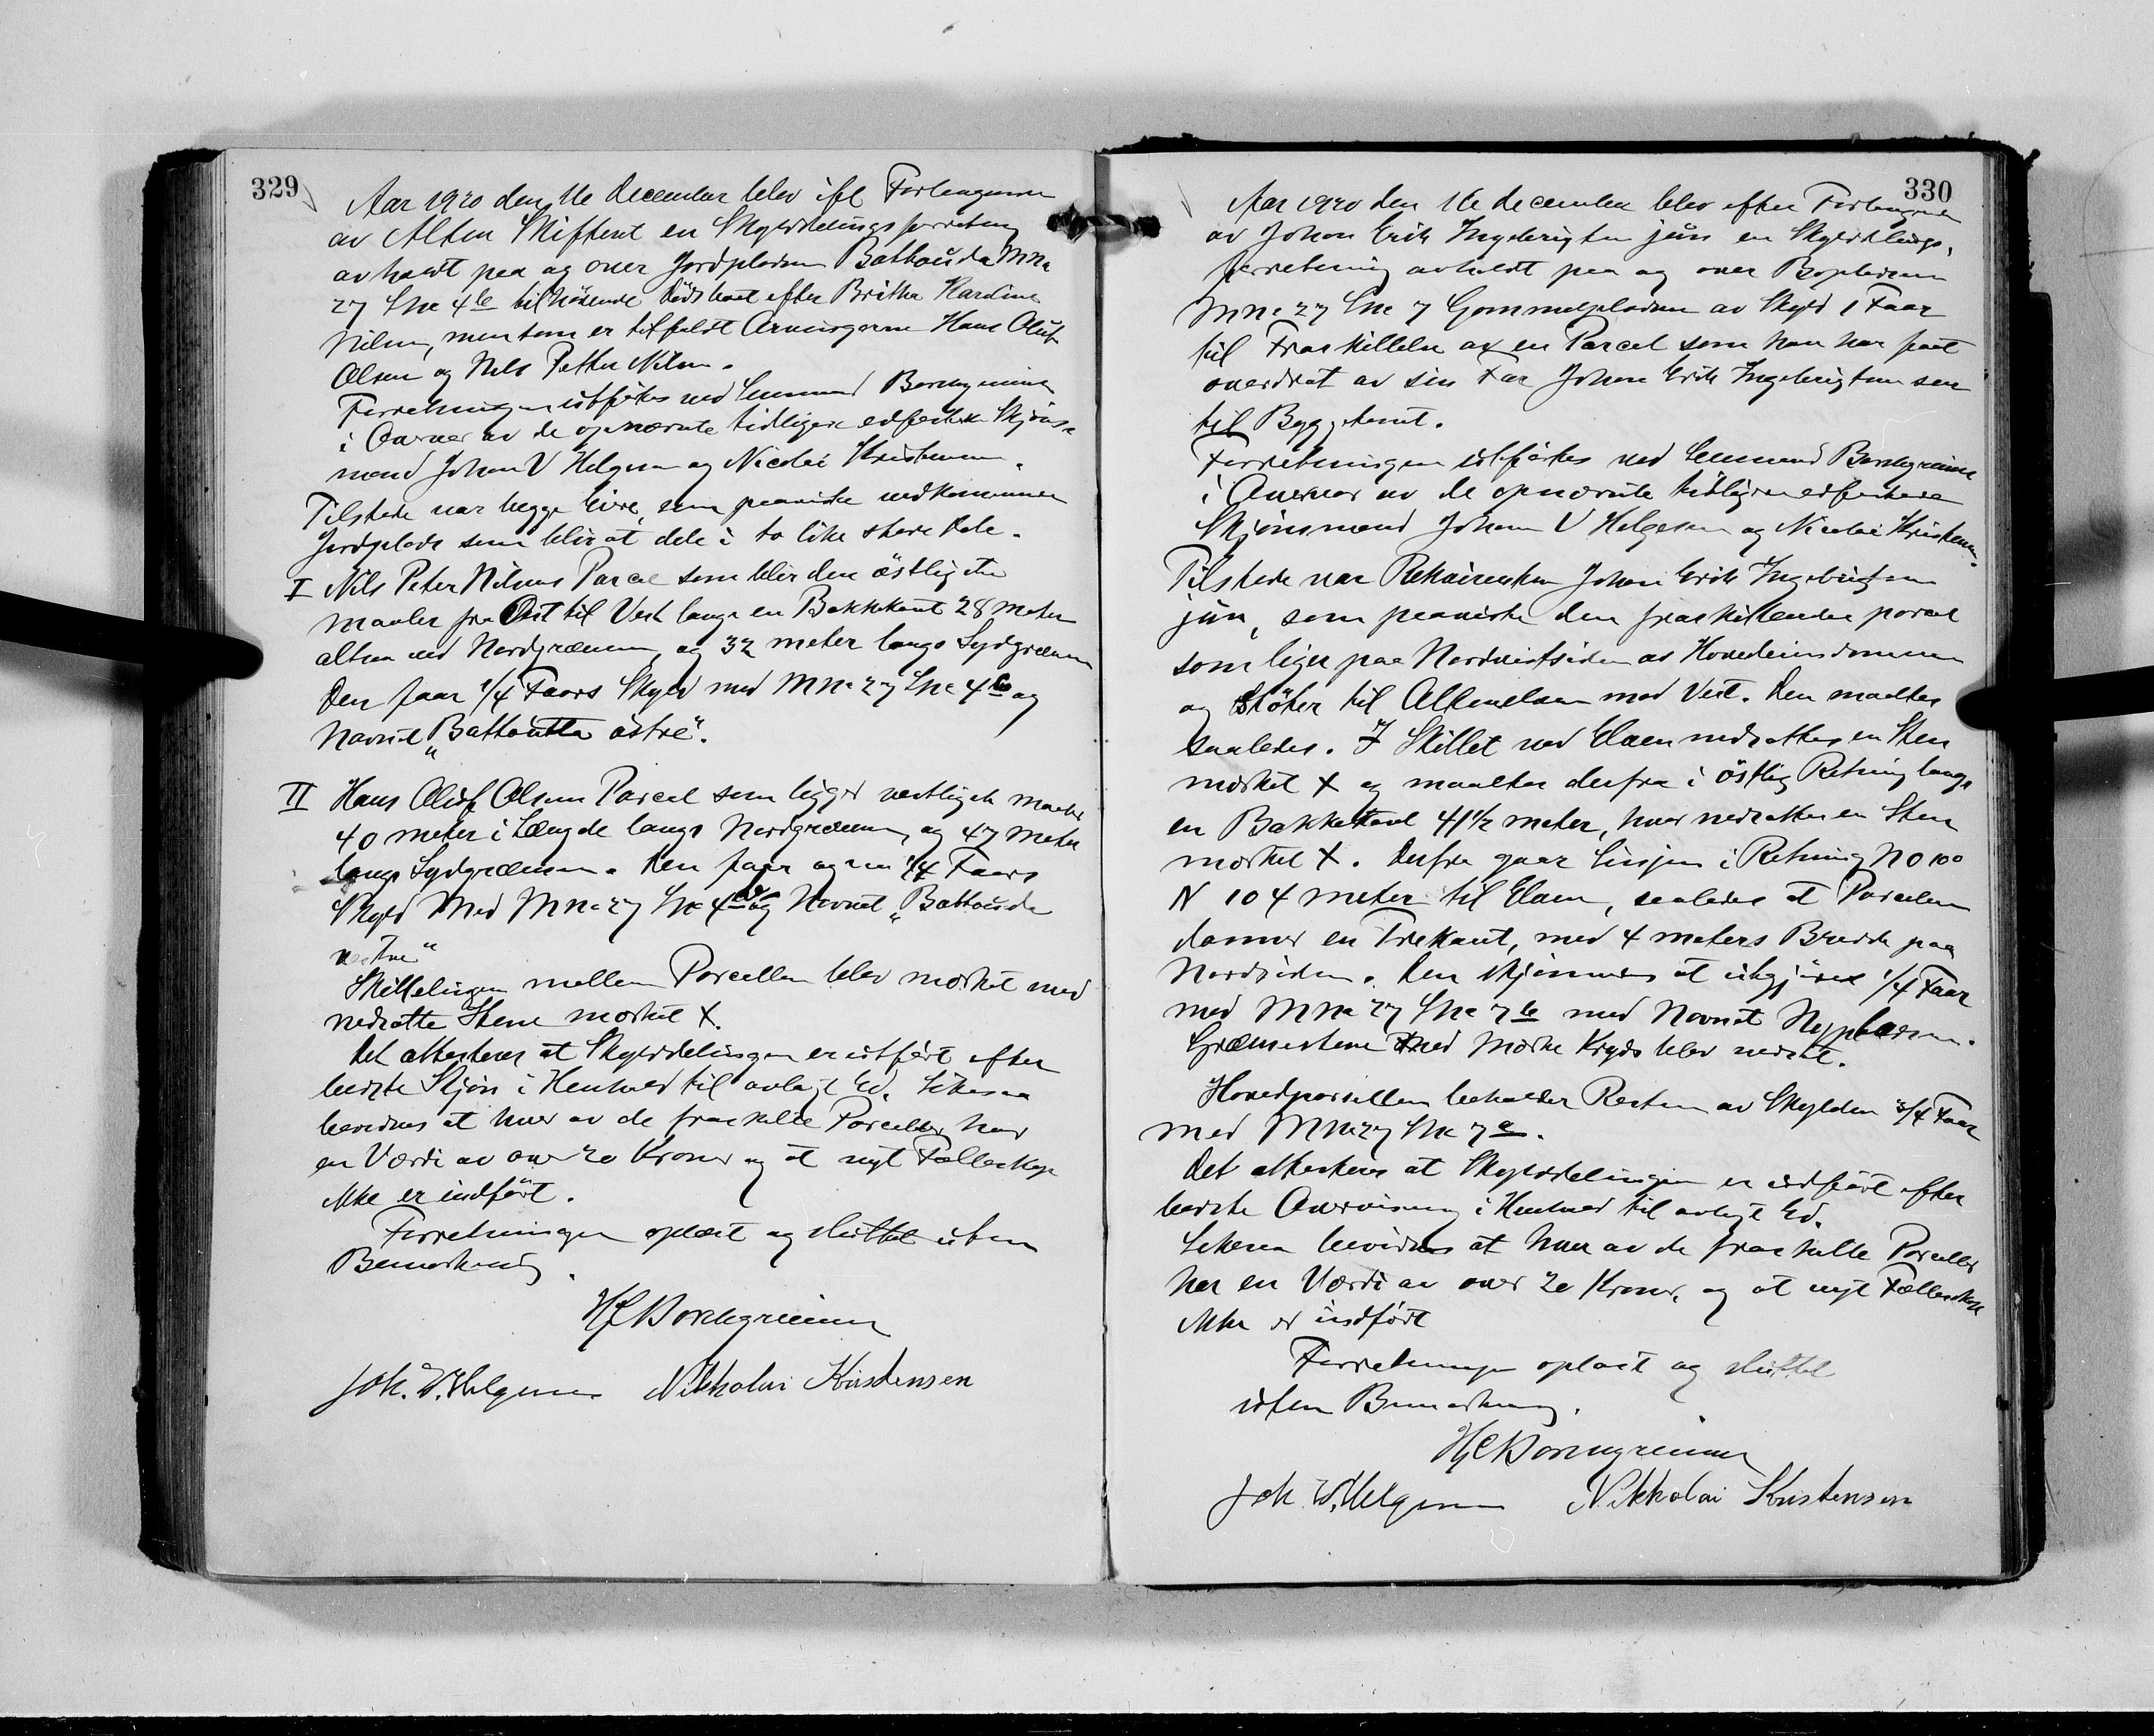 329
Aar 1920 den 16 December blev ifl Forlangende
av Alten Skifteret en Skylddelingsforretning
avholdt paa og over Jordpladsen Battouda Mno
27 Lno 4b tilhörende Dödsboet efter Brithe Kardine
Nilsen, men som er tilfaldt Arvingerne Hans Oluf
Olsen og Nils Petter Nilsen.
Forretningen utförtes ved Lensmand Borchgrevink
i Overvær av de opnævnte tidligere edfæstede Skjöns-
mænd Johan V Helgesen og Nicolai Kristensen.
Tilstede var begge Eiere, som paaviste vedkommende
Jordplads som blir at dele i to like store Dele.
I Nils Peter Nilsens Parcel som blir den östligste
maaler fra Öst til Vest langs en Bakkekant 28 meter
altsaa ved Nordgrænsen, og 32 meter langs Sydgrænsen
Den faar 1/4 Faars Skyld med Mno 27 Lno 4b og
Navnet „Battoutta östre".
II Hans Oluf Olsens Parcel som ligger vestligst maaler
40 meter i Længde langs Nordgrænsen, og 47 meter
langs Sydgrænsen. Den faar ogsaa 1/4 Faars
Skyld Med Mno 27 Lno og Navnet „Battouda
vestre"
Skillelinjen mellem Parcellen blev mærket med
nedsatte Stene mærket X.
Det attesteres at Skylddelingen er utfört efter
bedste Skjön i Henhold til avlagt Ed. Likesaa
bevidnes at hver av de fraskilte Parceller har
en Værdi av over 20 Kroner og at nyt Fællesskap
ikke er indfört.
Forretningen oplæst og sluttet uten
Bemærkning.
HC Borchgrevink
Joh. V. Helgesen Nikkolai Kristensen
330
Aar 1920 den 16 december blev efter Forlangende
av Johan Erik Ingebrigtsen jun en Skylddelings-
forretning avholdt paa og over Bopladsen
Mno 27 Lno 7 Gammelpladsen av Skyld 1 Faar
til Fraskillelse av en Parcel som han har faat
overdrat av sin Far Johan Erik Ingebrigtsen sen
til Byggetomt.
Forretningen utförtes ved Lensmand Borchgrevink
i Overvær av de opnævnte tidligere edfæstede
Skjönsmænd Johan V Helgesen og Nicolai Kristensen.
Tilstede var Rekvirenten Johan Erik Ingebrigtsen
jun, som paaviste den fraskillende parcel
som liger paa Nordvestsiden av Hovedeiendommen
og stöter til Altenelven mod Vest. Den maaltes
saaledes. I Skillet ved Elven nedsattes en Sten
mærket X og maaltes derfra i östlig Retning langs
en Bakkekant 41 1/2 meter, hvor nedsattes en Sten
mærket X. Derfra gaar Linjen i Retning NO 10°
N 104 meter til Elven, saaledes at Parcelen
danner en Trekant, med 4 meters Bredde paa
Nordsiden. Den skjönnedes at utgjöre 1/4 Faar
med Mno 27 Lno 7b med Navnet Nypladsen.
Grænsestene med Mærke Kryds blev nedsat.
Hovedparcellen beholder Resten av Skylden 3/4 Faar
med Mno 27 Lno 7a.
Det attesteres at Skylddelingen er utfört efter
bedste Overvisning i Henhold til avlagt Ed.
Likesaa bevidnes at hver av de fraskilte Parceller
har en Værdi av over 20 Kroner, og at nyt Fællesskap
ikke er indfört
Forretningen oplæst og sluttet
uten Bemærkning.
HC Borchgrevink
Joh. V. Helgesen Nikkolai Kristensen